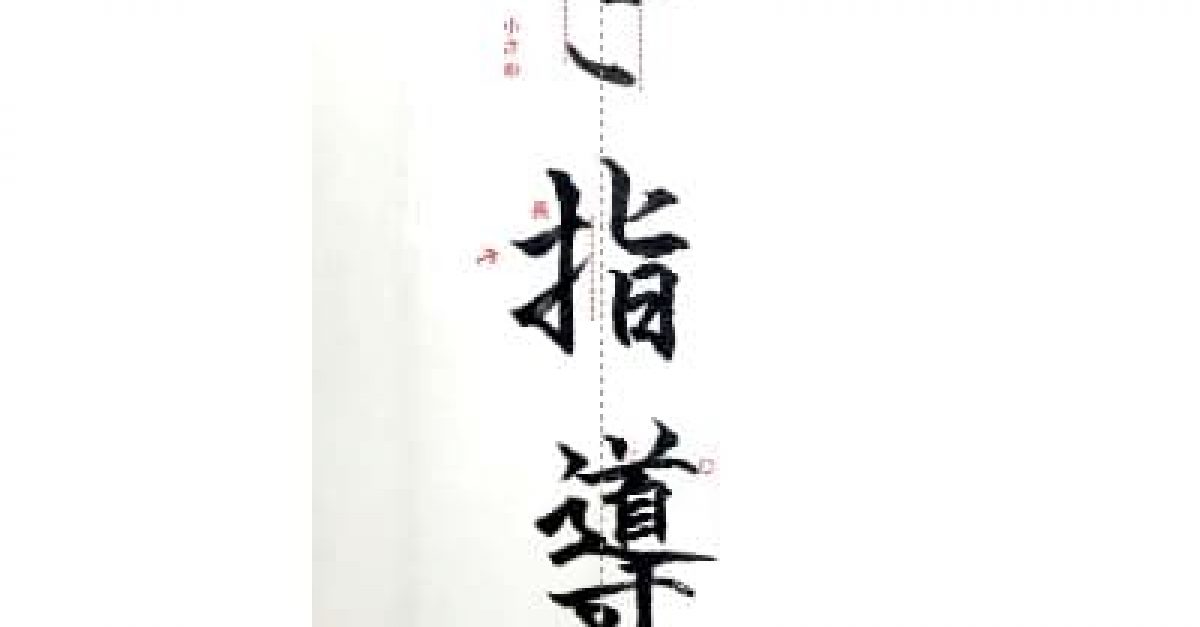 指導
小さめ
長